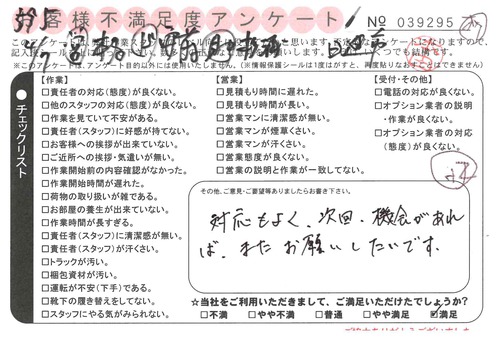 お客様不満足度アンケート
№ 039295
※このアンケートは、アンケート目的以外には使用いたしません。(※情報保護シールは1度はがすと、再度貼りなおすことはできません)
チェックリスト
【作業】
□責任者の対応(態度)が良くない。
□他のスタッフの対応(態度)が良くない。
□作業を見ていて不安がある。
□責任者(スタッフ)に好感が持てない。
□お客様への挨拶が出来ていない。
□ご近所への挨拶・気遣いが無い。
□作業開始前の内容確認がなかった。
□作業開始時間が遅れた。
□荷物の取り扱いが雑である。
□お部屋の養生が出来ていない。
□作業時間が長すぎる。
□責任者(スタッフ)に清潔感が無い。
□責任者(スタッフ)が汗くさい。
□トラックが汚い。
□梱包資材が汚い。
□運転が不安(下手)である。
□靴下の履き替えをしてない。
□スタッフにやる気がみられない。
【営業】
□見積もり時間に遅れた。
□見積もり時間が長い。
□営業マンに清潔感が無い。
□営業マンが煙草くさい。
□営業マンが汗くさい。
□営業態度が良くない。
□営業の説明と作業が一致してない。
【受付・その他】
□電話の対応が良くない。
□オプション業者の説明
・作業が良くない。
□オプション業者の対応
(態度)が良くない。
その他、ご意見・ご要望等ありましたらお書き下さい。
対応もよく、次回、機会があれ
ば、またお願いしたいです。
☆当社をご利用いただきまして、ご満足いただけたでしょうか?
□不満 □やや不満 □普通 □やや満足 ☑満足